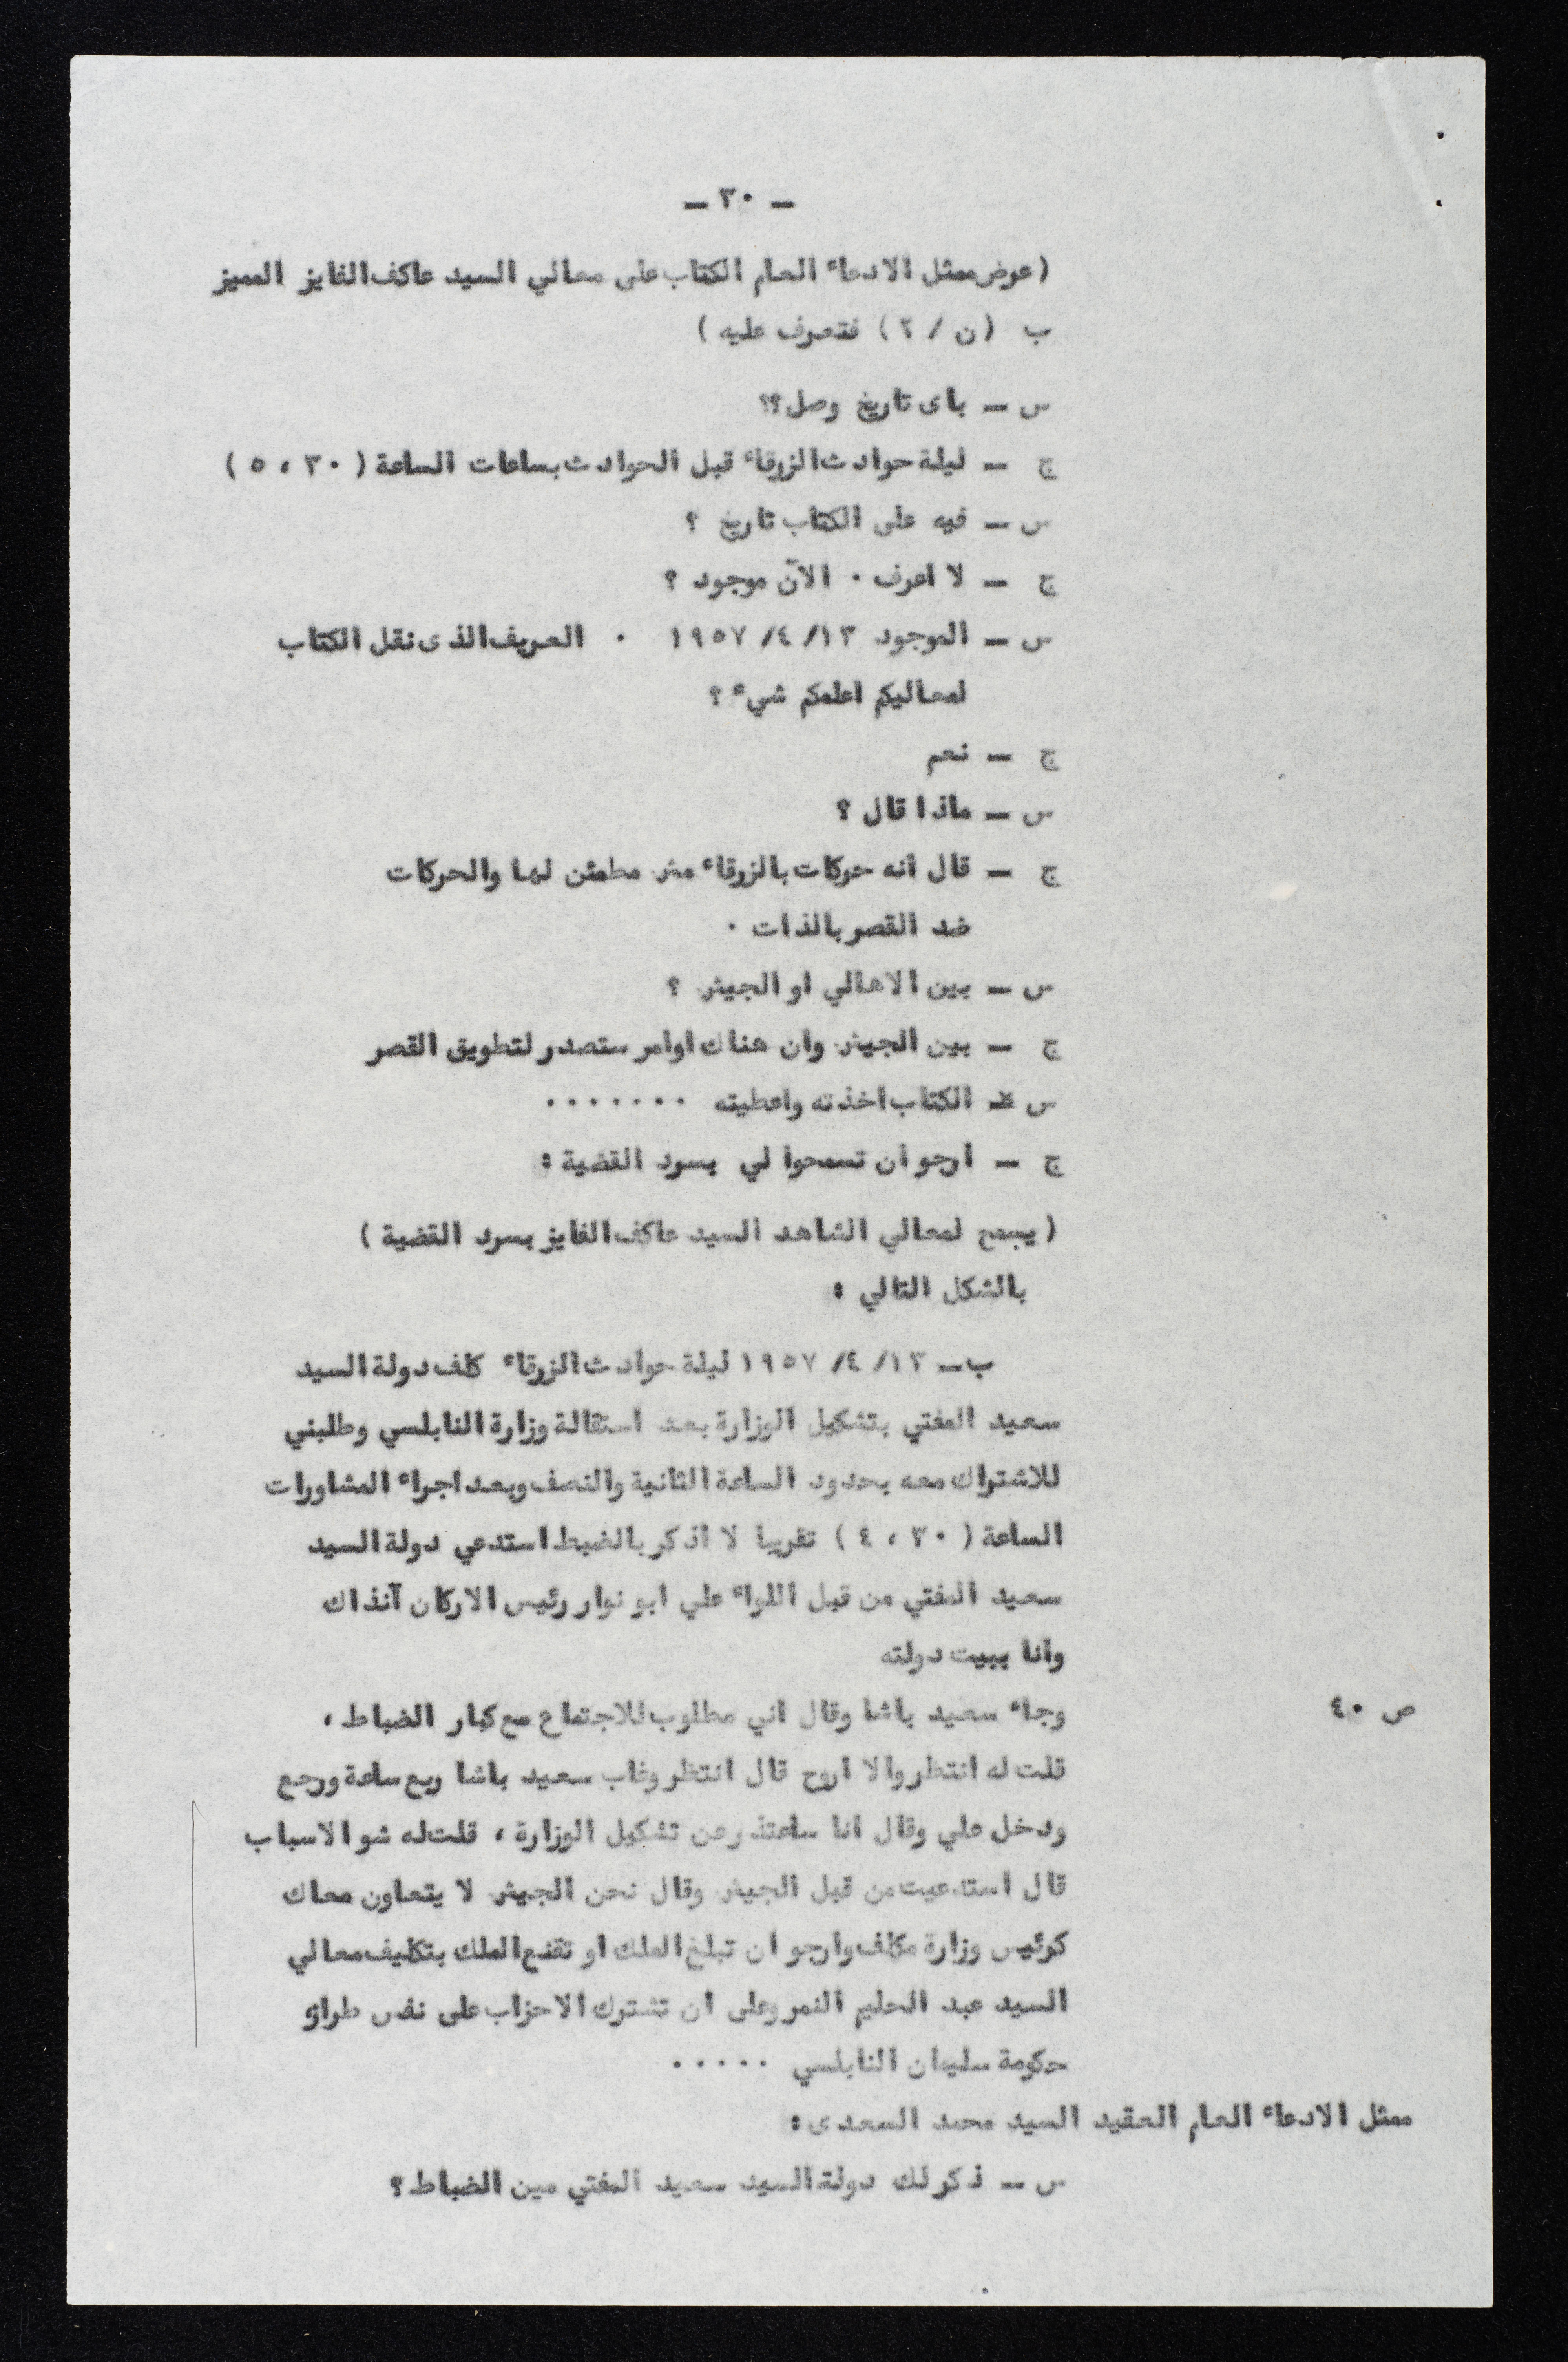 – ٣٠ –
(عرض ممثل الادعاء العام الكتاب على معالي السيد عاكف الفايز المميز
ب (ن / ٢) فتعرف عليه)
س – باى تاريخ وصل؟؟
ج – ليلة حوادث الزرقاء قبل الحوادث بساعات الساعة (٣٠ ، ٥)
س – فيه على الكتاب تاريخ ؟
ج – لا اعرف . الآن موجود ؟
س – الموجود ١٣/ ٤/ ١٩٥٧ . العريف الذى نقل الكتاب
لمعاليكم اعلمكم شيء ؟
ج – نعم
س – ماذا قال ؟
ج – قال انه حركات بالزرقاء مش مطمئن لها والحركات
ضد القصر بالذات .
س – بين الاهالي او الجيش ؟
ج – بين الجيش وان هناك اوامر ستصدر لتطويق القصر
س – الكتاب اخذته واعطيته . . . . . . .
ج – ارجو ان تسمحوا لي بسرد القضية :
( يسمح لمعالي الشاهد السيد عاكف الفايز بسرد القضية )
بالشكل التالي :
ب – ١٣/ ٤/ ١٩٥٧ ليلة حوادث الزرقاء كلف دولة السيد
سعيد المفتي بتشكيل الوزارة بعد استقالة وزارة النابلسي وطلبني
للاشتراك معه بحدود الساعة الثانية والنصف وبعد اجراء المشاورات
الساعة (٣٠ ، ٤) تقريبا لا اذكر بالضبط استدعي دولة السيد
سعيد المفتي من قبل اللواء علي ابو نوار رئيس الاركان آنذاك
وانا ببيت دولته
ص ٤٠ وجاء سعيد باشا وقال اني مطلوب للاجتماع مع كبار الضباط ،
قلت له انتظر والا اروح قال انتظر وغاب سعيد باشا ربع ساعة ورجع
ودخل علي وقال انا ساعتذر عن تشكيل الوزارة ، قلت له شو الاسباب
قال استدعيت من قبل الجيش وقال نحن الجيش لا يتعاون معاك
كرئيس وزارة مكلف وارجو ان تبلغ الملك او تقنع الملك بتكليف معالي
السيد عبد الحليم النمر وعلى ان تشترك الاحزاب على نفس طراز
حكومة سليمان النابلسي . . . . .
ممثل الادعاء العام العقيد السيد محمد السعدى :
س – ذكر لك دولة السيد سعيد المفتي مين الضباط ؟